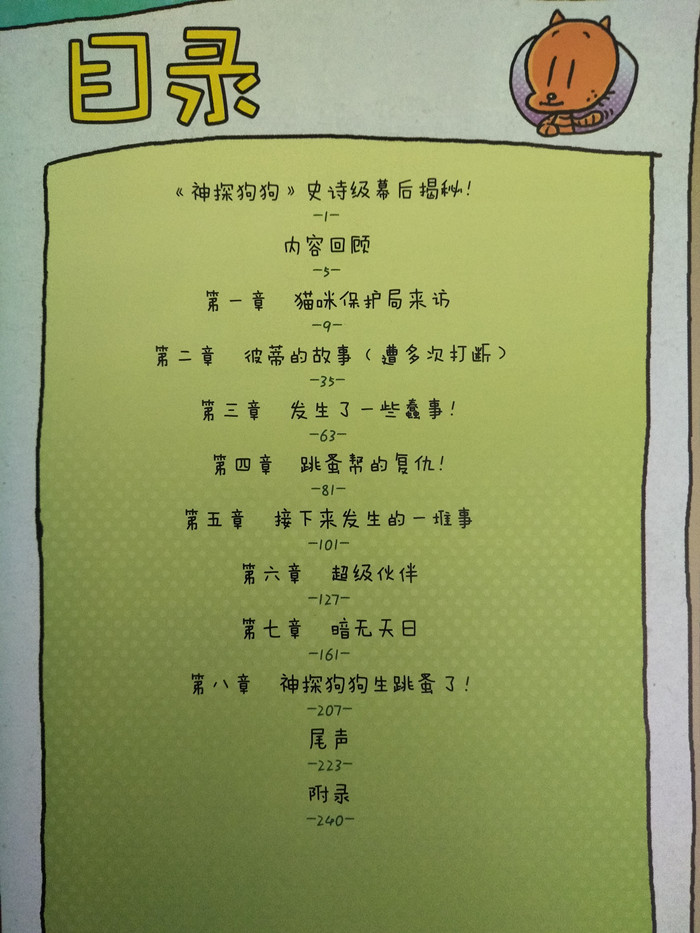 目录
《神探狗狗》史诗级幕后揭秘！
-1-
内容回顾
-5-
第一章 猫咪保护局来访
-9-
第二章 彼蒂的故事（遭多次打断）
-35-
第三章 发生了一些蠢事！
-63-
第四章 跳蚤帮的复仇！
-81-
第五章 接下来发生的一堆事
-101-
第六章 超级伙伴
-127-
第七章 暗无天日
-161-
第八章 神探狗狗生跳蚤了！
-207-
尾声
-223-
附录
-240-